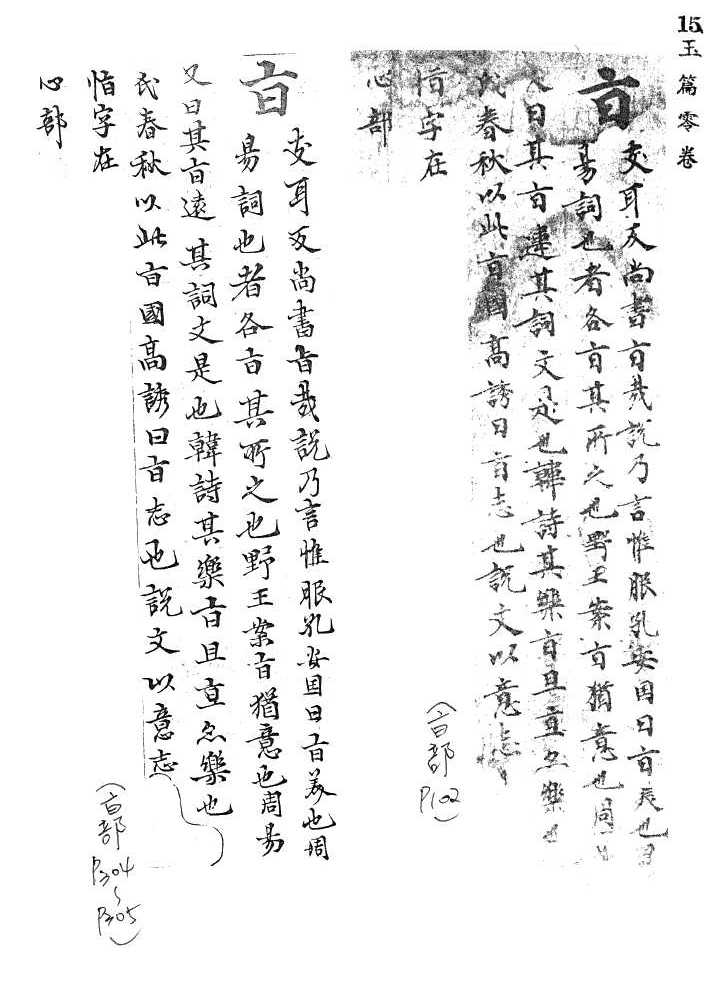 15
玉篇零卷
亯
支耳反尚書亯哉說乃言惟服孔安国曰亯美也周
易詞也者各亯其所之也野王案亯猶意也周
曰其亯遠其詞文是也韓詩其樂亯且亶亯樂也
氏春秋以此亯國高誘曰亯志也說文以意志
恉字在
心部
（亯部
P102）
亯
支耳反尚書亯哉說乃言惟服孔安国曰亯美也周
易詞也者各亯其所之也野王案亯猶意也周易
又曰其亯遠其詞文是也韓詩其樂亯且亶樂也
氏春秋以此亯國高誘曰亯志也說文以意志
恉字在
心部
（亯部
P304
~
P305）